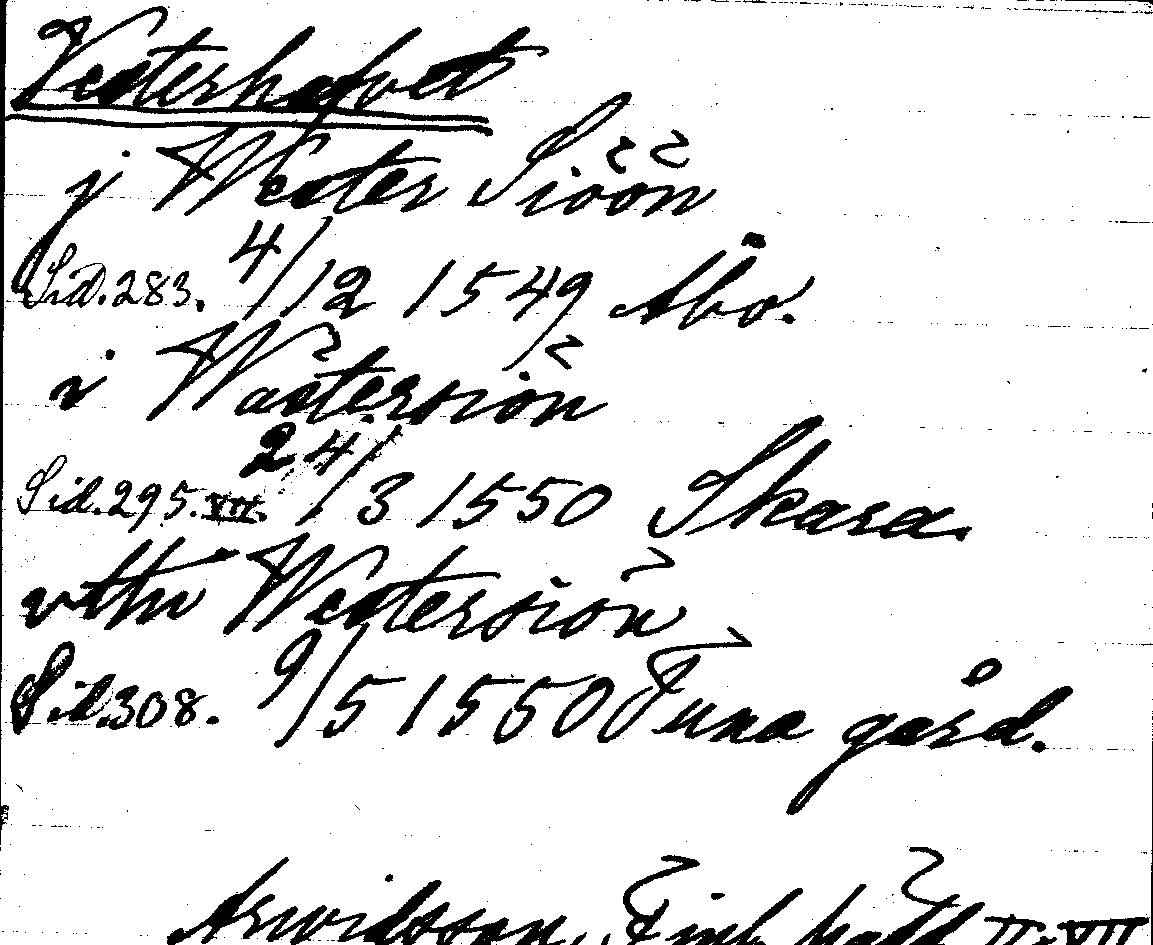 Vesterhafvet
j Wester Siöön
Sid. 283. 4/12 1549 Åbo.
i Wästersiön
Sid. 295. VII. 24/3 1550 Skara.
vthi Westersiön
Sid. 308. 9/5 1550 Tuna gård.
Arwidsson, Finl. hädd II-VII